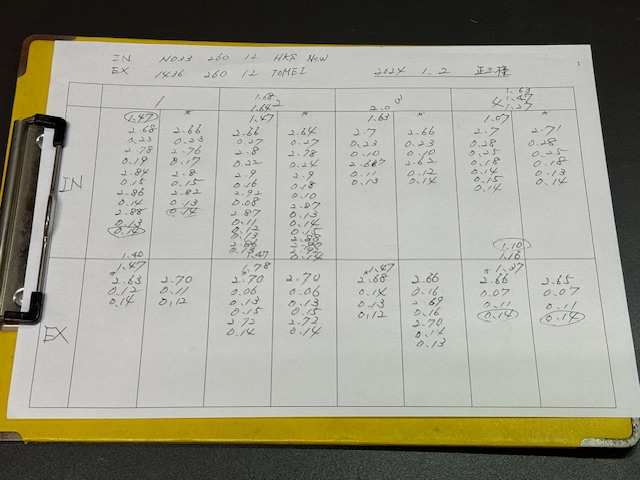 IN N033 260 12 HKS New
EX 1436 260 12 TOMEI 2024 1. 2 正三様
1 2 3 4
1.68 1.63
1.64 2.0 1.47
1.27
IN
1.47 " 1.47 " 1.63 " 1.07 "
2.68 2.66 2.66 2.64 2.7 2.66 2.7 2.71
0.23 0.23 0.27 0.27 0.23 0.23 0.28 0.28
2.78 2.76 2.8 2.78 0.10 0.10 0.25 0.25
0.19 0.17 0.22 0.24 2.62 0.18 0.18
2.84 2.8 2.9 2.9 0.11 0.12 0.14 0.13
0.15 0.15 0.16 0.18 0.13 0.14 0.15 0.14
2.86 2.82 2.92 0.10 0.14
0.14 0.13 0.08 2.87
2.88 0.14 2.87 0.13
0.13 0.11 0.14
0.14 0.12 0.15
0.13 2.88
1.10
1.40 1.47 0.14 1.16
EX
1.47 1.78 " 1.47 " 1.37
2.63 2.70 2.70 2.70 2.68 2.66 2.66 2.65
0.12 0.11 0.06 0.06 0.14 0.16 0.07 0.07
0.14 0.12 0.13 0.13 0.13 2.69 0.11 0.11
0.15 0.15 0.12 0.16 0.14 0.14
2.72 2.72 2.70
0.14 0.14 0.14
0.13